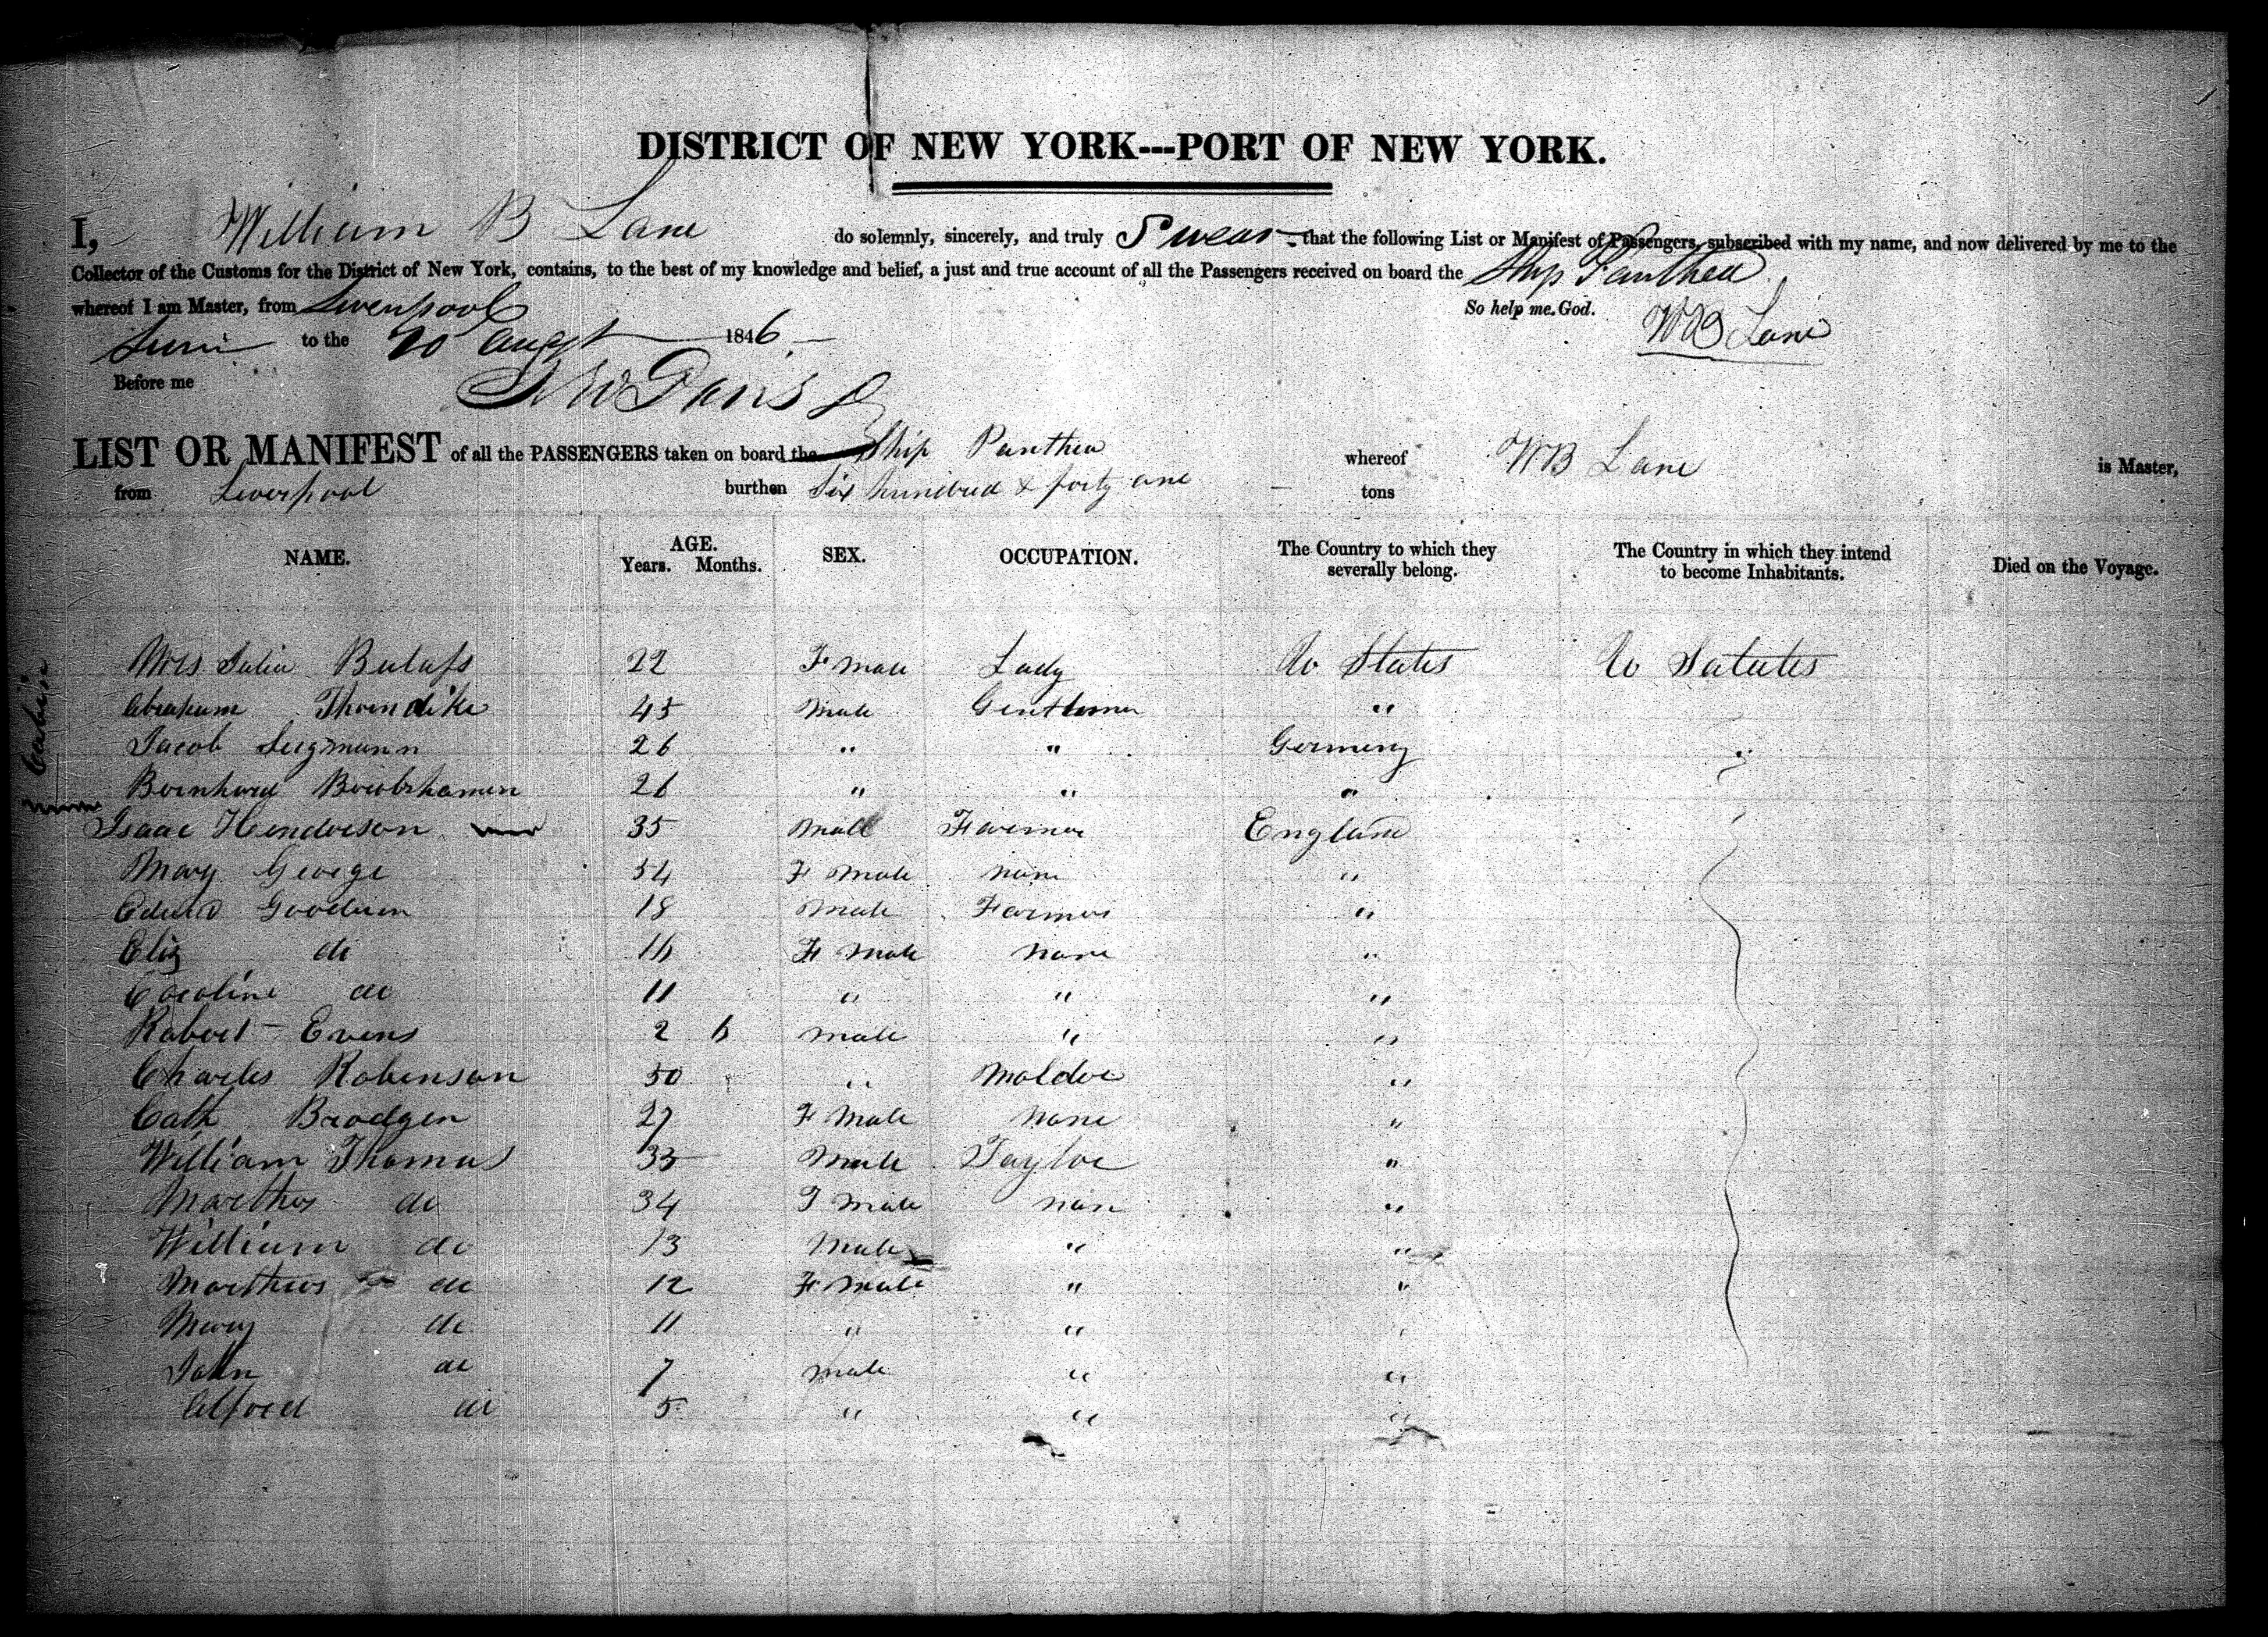 DISTRICT OF NEW YORK---PORT OF NEW YORK.
I, William B Lane do solemnly, sincerely, and truly Swear that the following List or Manifest of Passengers, subscribed with my name, and now delivered by me to the
Collector of the Customs for the District of New York, contains, to the best of my knowledge and belief, a just and true account of all the Passengers received on board the Ship Panthea
whereof I am Master, from Liverpool So help me God. WB Lane
to the 20 augst 1846
Before me
LIST OR MANIFEST of all the PASSENGERS taken on board the Ship Panthea whereof WB Lane is Master,
from Liverpool burthen Six hundred & forty one tons
NAME. AGE. Years. Months. SEX. OCCUPATION. The Country to which they severally belong. The Country in which they intend to become Inhabitants. Died on the Voyage.
Cabin
Mrs Julia 22 F male Lady U States U Satutes
Abraham Thorndike 45 Male Gentleman "
Jacob 26 " " Germeny "
Bernhard 26 " " "
Isaac Henderson 35 Male Farmer England
Mary George 54 F Male none "
Edwd Goodwin 18 Male Farmer "
Eliz do 16 F Male none "
Caroline do 11 " " "
Robert Evens 2 6 male " "
Charles Robinson 50 " Molder "
Cath Brodgen 27 F Male none "
William Thomas 33 Male Taylor "
Marthos do 34 F male non "
William do 13 Male " "
Marthos do 12 F Male " "
Mary do 11 " " "
John do 7 male " "
Alfred do 5 " " "